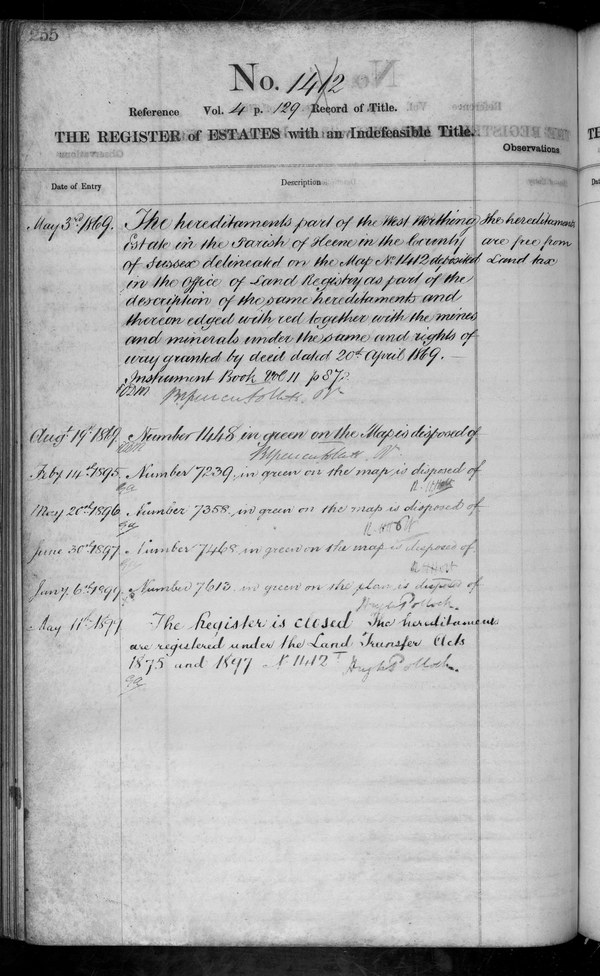 255
No. 1412
Reference Vol. 4 p. 129 Record of Title.
THE REGISTER of ESTATES with an Indefeasible Title.
Observations
Date of Entry
Description
May 3rd 1869. The hereditaments part of the West Worthing the hereditaments
Estate in the Parish of Heene in the County are free from
of Sussex delineated on the Map No 1412 deposited Land tax
in the Office of Land Registry as part of the
description of the same hereditaments and
thereon edged with red together with the mines
and minerals under the same and rights of
way granted by deed dated 20th April 1869. —
Instrument Book Vol 11 p 87.
Augt 19th 1869 Number 1448 in green on the Map is disposed of
Feby 14th 1895. Number 7239, in green on the map is disposed of
May 20th 1896 Number 7358, in green on the map is disposed of
June 30th 1897. Number 7468, in green on the map is disposed of
Jany. 6th 1899. Number 7613, in green on the plan is disposed of
Hugh Pollock.
May 11th 1899 The Register is closed The hereditaments
are registered under the Land Transfer Acts
1875 and 1897 No 1412 T
Hugh Pollock.